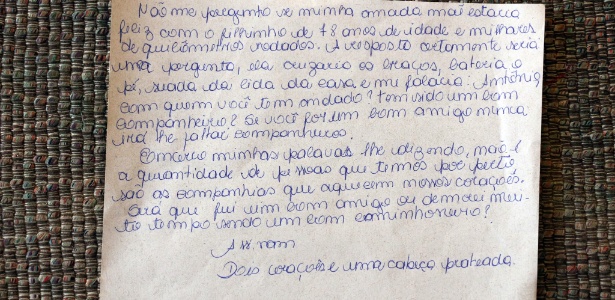 Não me pergunto se minha amada mãe estaria
feliz com o filhinho de 78 anos de idade e milhares
de quilômetros rodados. A resposta certamente seria
uma pergunta, ela cruzaria os braços, bateria o
pé, suada da lida da casa e me falaria: Antônio,
com quem você tem andado? Tem sido um bom
companheiro? Se você for um bom amigo nunca
irá lhe faltar companheiros.
Encerro minhas palavras lhe dizendo, mais é
a quantidade de pessoas que temos por perto
são as companhias que aquecem nossos corações.
Será que fui um bom amigo ou demorei mui-
to tempo sendo um bom caminhoneiro?
Assinam
Dois corações e uma cabeça prateada.